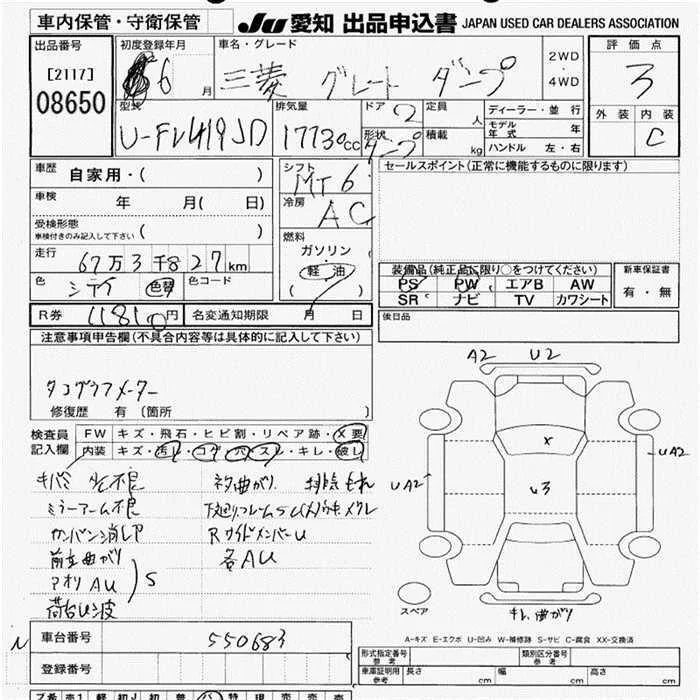 車内保管・守衛保管
JU 愛知 出品申込書 JAPAN USED CAR DEALERS ASSOCIATION
出品番号
[2117]
08650
初度登録年月
6 月
車名・グレード
三菱 グレート ダンプ
2WD
・
4WD
評価点
3
外装 内装
C
型式
U-FV419JD
排気量
17730cc
ドア
2
形状
ダンプ
定員
人
積載
kg
ディーラー・並行
モデル年式 年
ハンドル 左・右
車歴
自家用・( )
車検
年 月( 日)
受検形態
車検付きのみ記入して下さい ( )
走行
67万3千827km
色
シロイ
色替
色コード
シフト
MT 6
冷房
AC
燃料
ガソリン
・
軽油
( )
セールスポイント(正常に機能するものに限ります)
装備品(純正品に限り○をつけてください)
PS PW エアB AW
SR ナビ TV カワシート
新車保証書
有・無
R券 11810円
名変通知期限 月 日
後日品
注意事項申告欄(不具合内容等は具体的に記入して下さい)
タコグラフメーター
修復歴 有 〔箇所 〕
検査員
記入欄
FW キズ・飛石・ヒビ割・リペア跡・X要
内装 キズ・汚レ・コゲ・穴・スレ・キレ・破レ
キバミ 不良
ミラーアーム不良
カンバン消し
前立曲がり
アオリAU
荷台 波
S
曲がり 排気もれ
下廻りフレームS
RサイドメンバーU
各AU
A2 U2
X
U3
UA2
UA2
スペア
キレ、曲がり
A-キズ E-エクボ U-凹み W-補修跡 S-サビ C-腐食 XX-交換済
N
車台番号
550683
登録番号
形式指定番号
参考
類別区分番号
参考
車庫証明用
参考
長さ cm
幅 cm
高さ cm